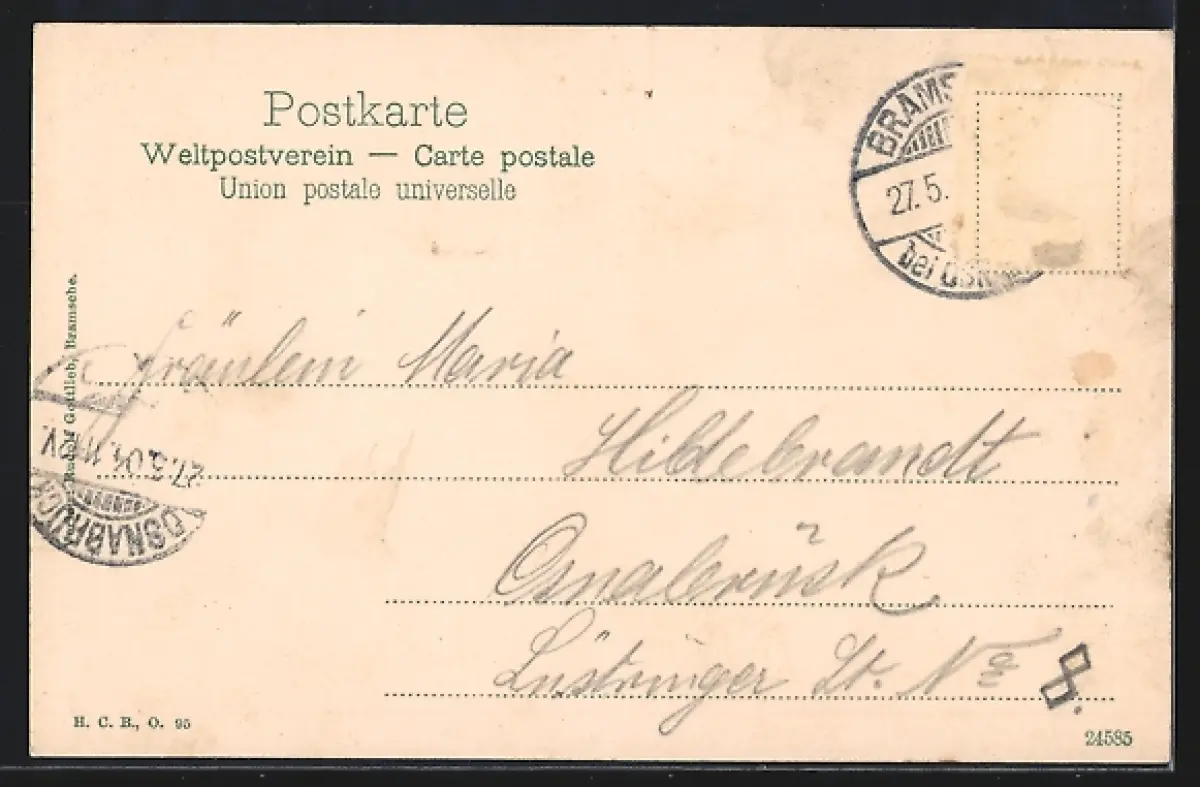 Postkarte
Weltpostverein — Carte postale
Union postale universelle
BRAMS
27.5.
bei OSN
Rudolf Gottlieb, Bramsche.
Fräulein Maria
Hildebrandt
Osnabrück
Lüstringer St. No 8.
27.5.04. 11-12V.
OSNABRÜCK
H. C. B., O. 95
24585